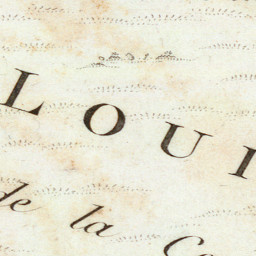 LOUI
de la Co